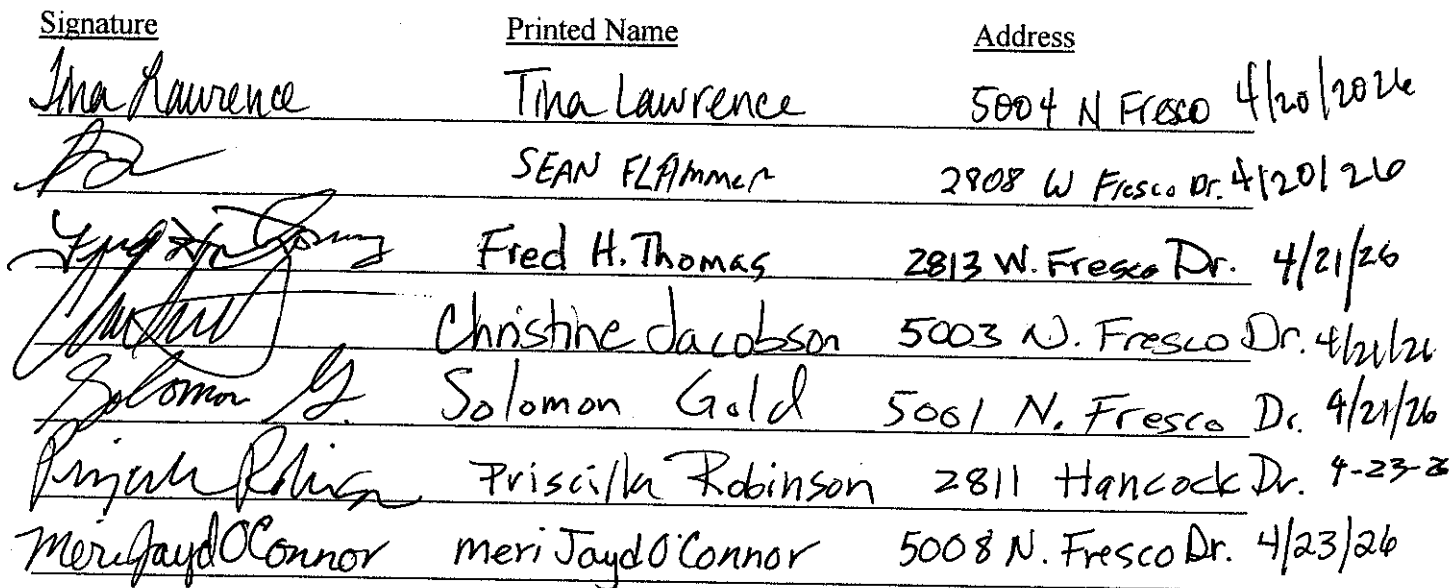 Signature Printed Name Address
Tina Lawrence Tina Lawrence 5004 N Fresco 4/20/2026
SEAN FLAMMER 2908 W Fresco Dr. 4/20/26
Fred H. Thomas 2813 W. Fresco Dr. 4/21/26
Christine Jacobson 5003 N. Fresco Dr. 4/21/26
Solomon G. Solomon Gold 5001 N. Fresco Dr. 4/21/26
Priscilla Robinson 2811 Hancock Dr. 4-23-26
Meri Jayd O'Connor meri Jayd O'Connor 5008 N. Fresco Dr. 4/23/26